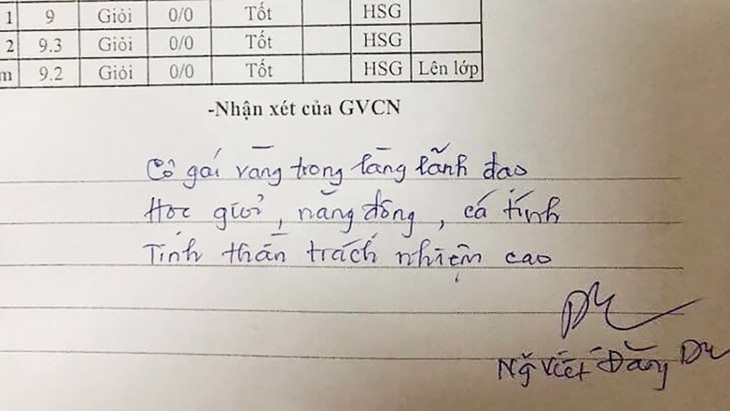 1 9 Giỏi 0/0 Tốt HSG
2 9.3 Giỏi 0/0 Tốt HSG
m 9.2 Giỏi 0/0 Tốt HSG Lên lớp
-Nhận xét của GVCN
Cô gái vàng trong làng lãnh đạo
Học giỏi, năng động, cá tính
Tinh thần trách nhiệm cao
Ng Viết Đăng Du